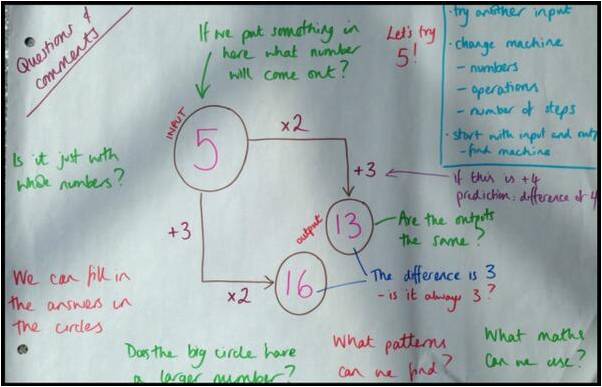 Questions &
comments
If we put something in
here what number
will come out?
Let's try
5!
· try another input
· change machine
– numbers
– operations
– number of steps
· start with input and
– find machine
INPUT
5
x2
+3
Is it just with
whole numbers?
If this is +4
prediction: difference of 4
+3
output
13
Are the outputs
the same?
x2
16
The difference is 3
– is it always 3?
We can fill in
the answers in
the circles
Does the big circle have
a larger number?
What patterns
can we find?
What maths
can we use?